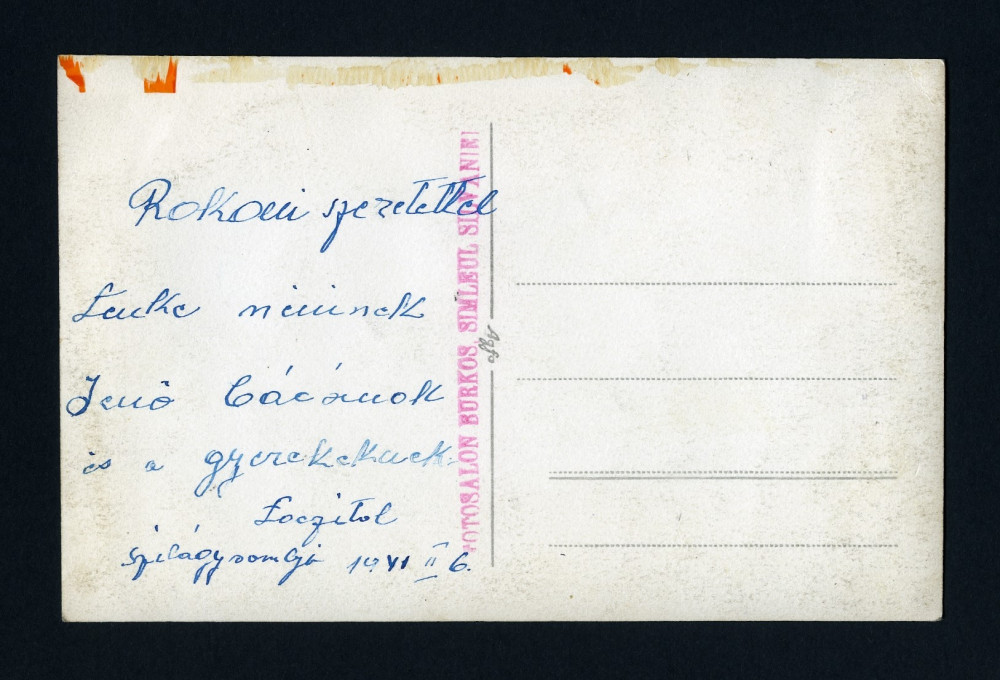 Rokoni szeretettel
néninek
Jenő bácsinak
és a gyerekeknek
Loczitol
Szilágysomlyó 1941 II 6.
FOTOSALON BURKOS, SIMLEUL SILVANIEI
Agfa